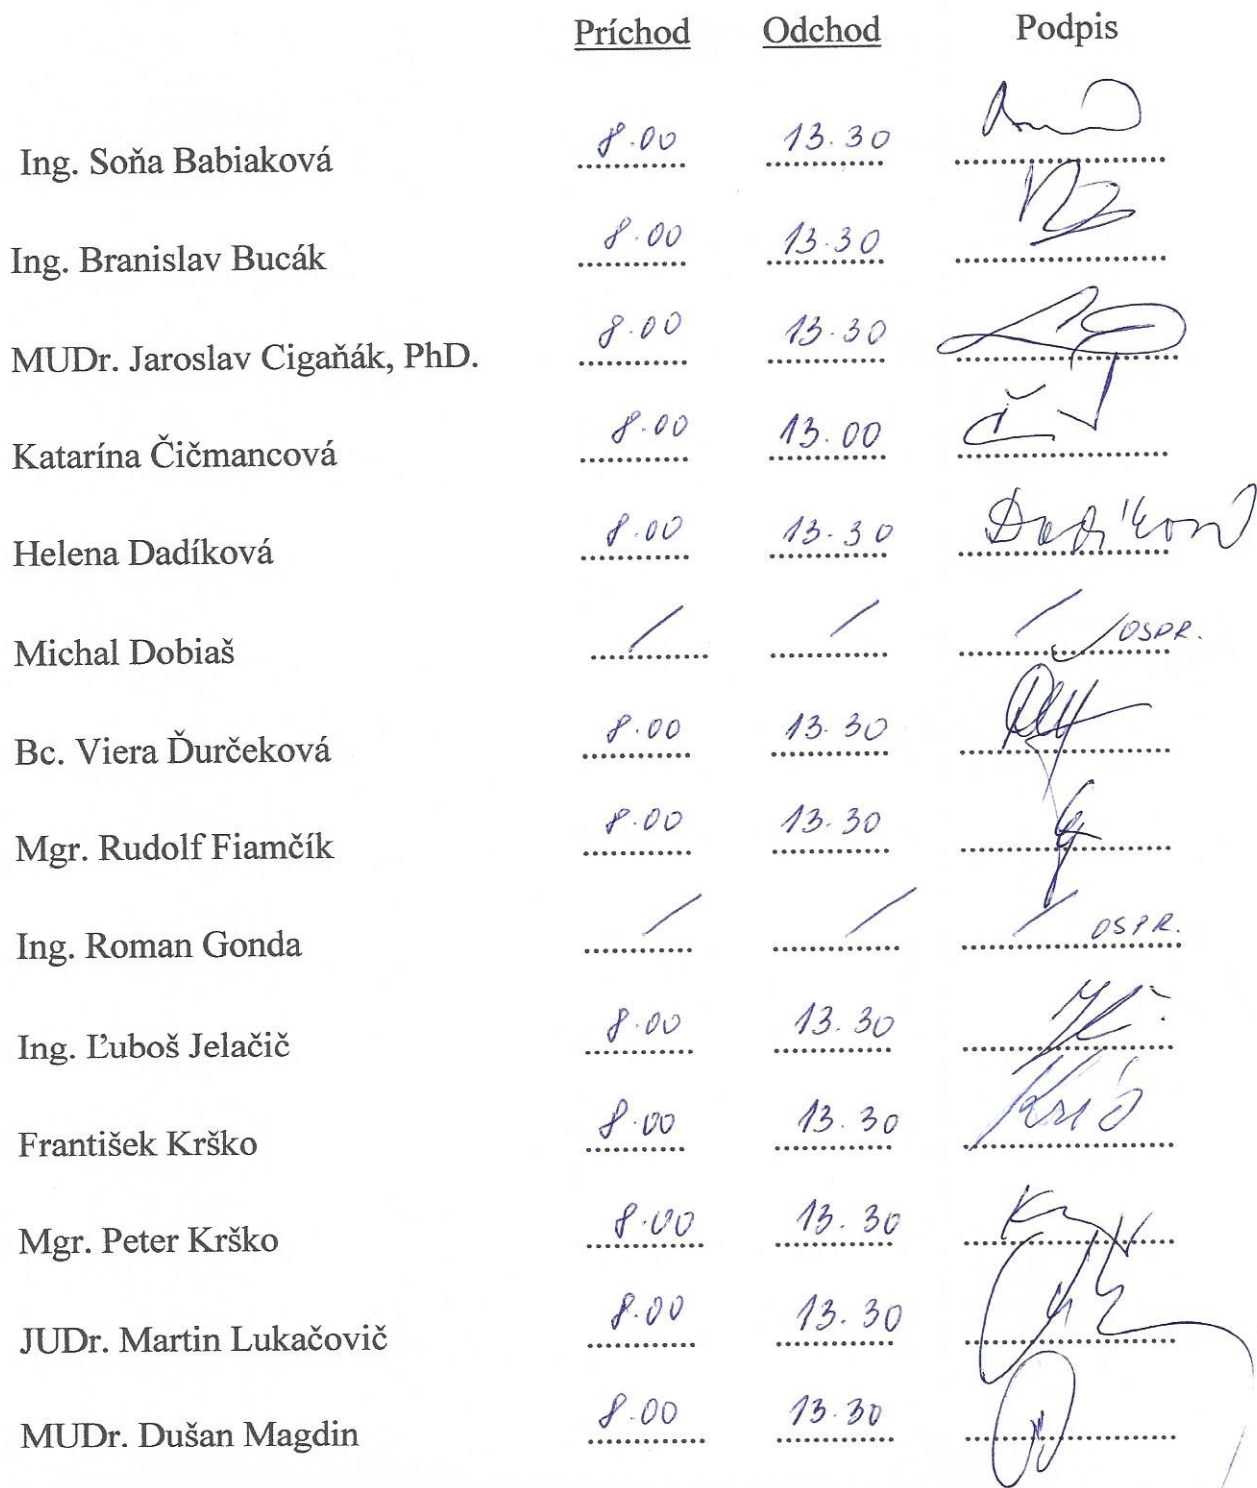 Príchod Odchod Podpis
Ing. Soňa Babiaková 8.00 13.30
Ing. Branislav Bucák 8.00 13.30
MUDr. Jaroslav Cigaňák, PhD. 8.00 13.30
Katarína Čičmancová 8.00 13.00
Helena Dadíková 8.00 13.30 Dadíková
Michal Dobiaš / / / OSPR.
Bc. Viera Ďurčeková 8.00 13.30
Mgr. Rudolf Fiamčík 8.00 13.30
Ing. Roman Gonda / / / OSPR.
Ing. Ľuboš Jelačič 8.00 13.30
František Krško 8.00 13.30
Mgr. Peter Krško 8.00 13.30
JUDr. Martin Lukačovič 8.00 13.30
MUDr. Dušan Magdin 8.00 13.30